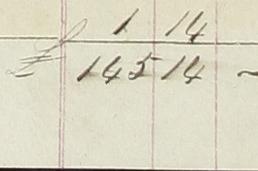 1 14
£ 145 14 ~